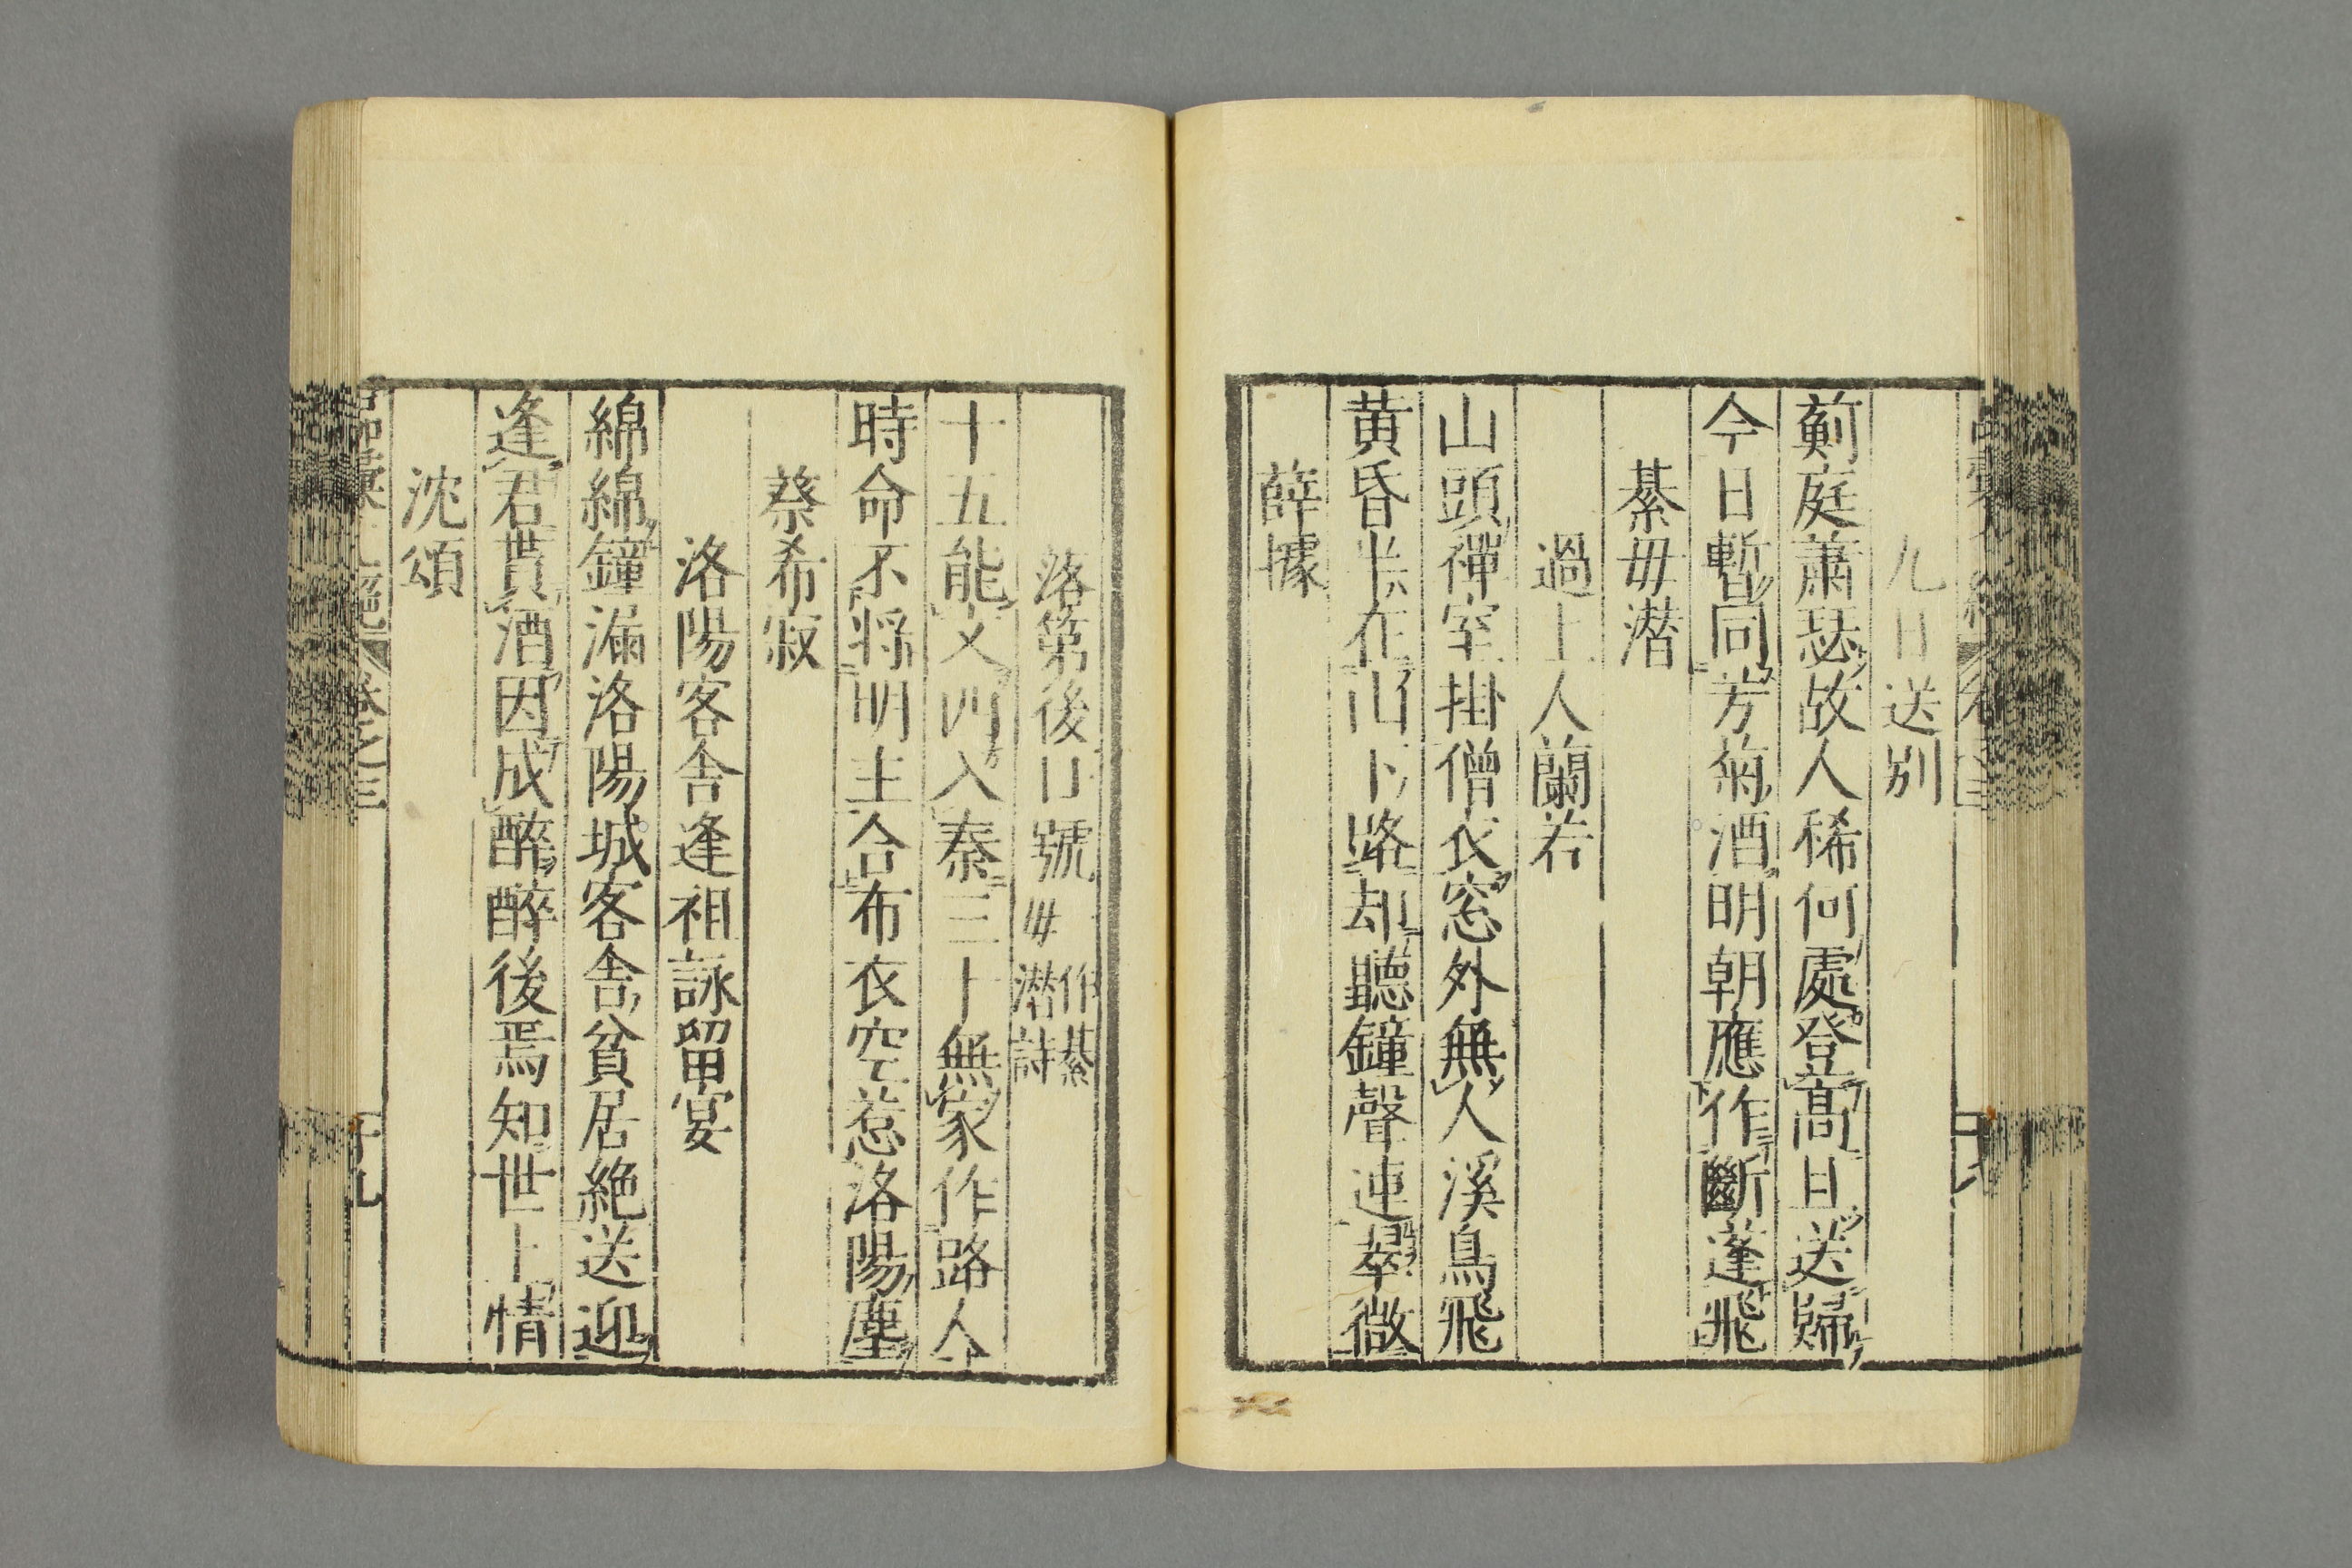 九日送別
薊庭蕭瑟故人稀何處登高且送歸
今日暫同芳菊酒明朝應作斷蓬飛
綦毋潛
過上人蘭若
山頭禪室掛僧衣窓外無人溪鳥飛
黃昏半在山下路却聽鐘聲連翠微
薛據
落第後口號
作綦
毋潛詩
十五能文四入秦三十無家作路人
時命不將明主合布衣空惹洛陽塵
蔡希寂
洛陽客舍逢祖詠留宴
綿綿鐘漏洛陽城客舍貧居絶送迎
逢君貰酒因成醉醉後焉知世上情
沈頌
品彙
卷之三
十九